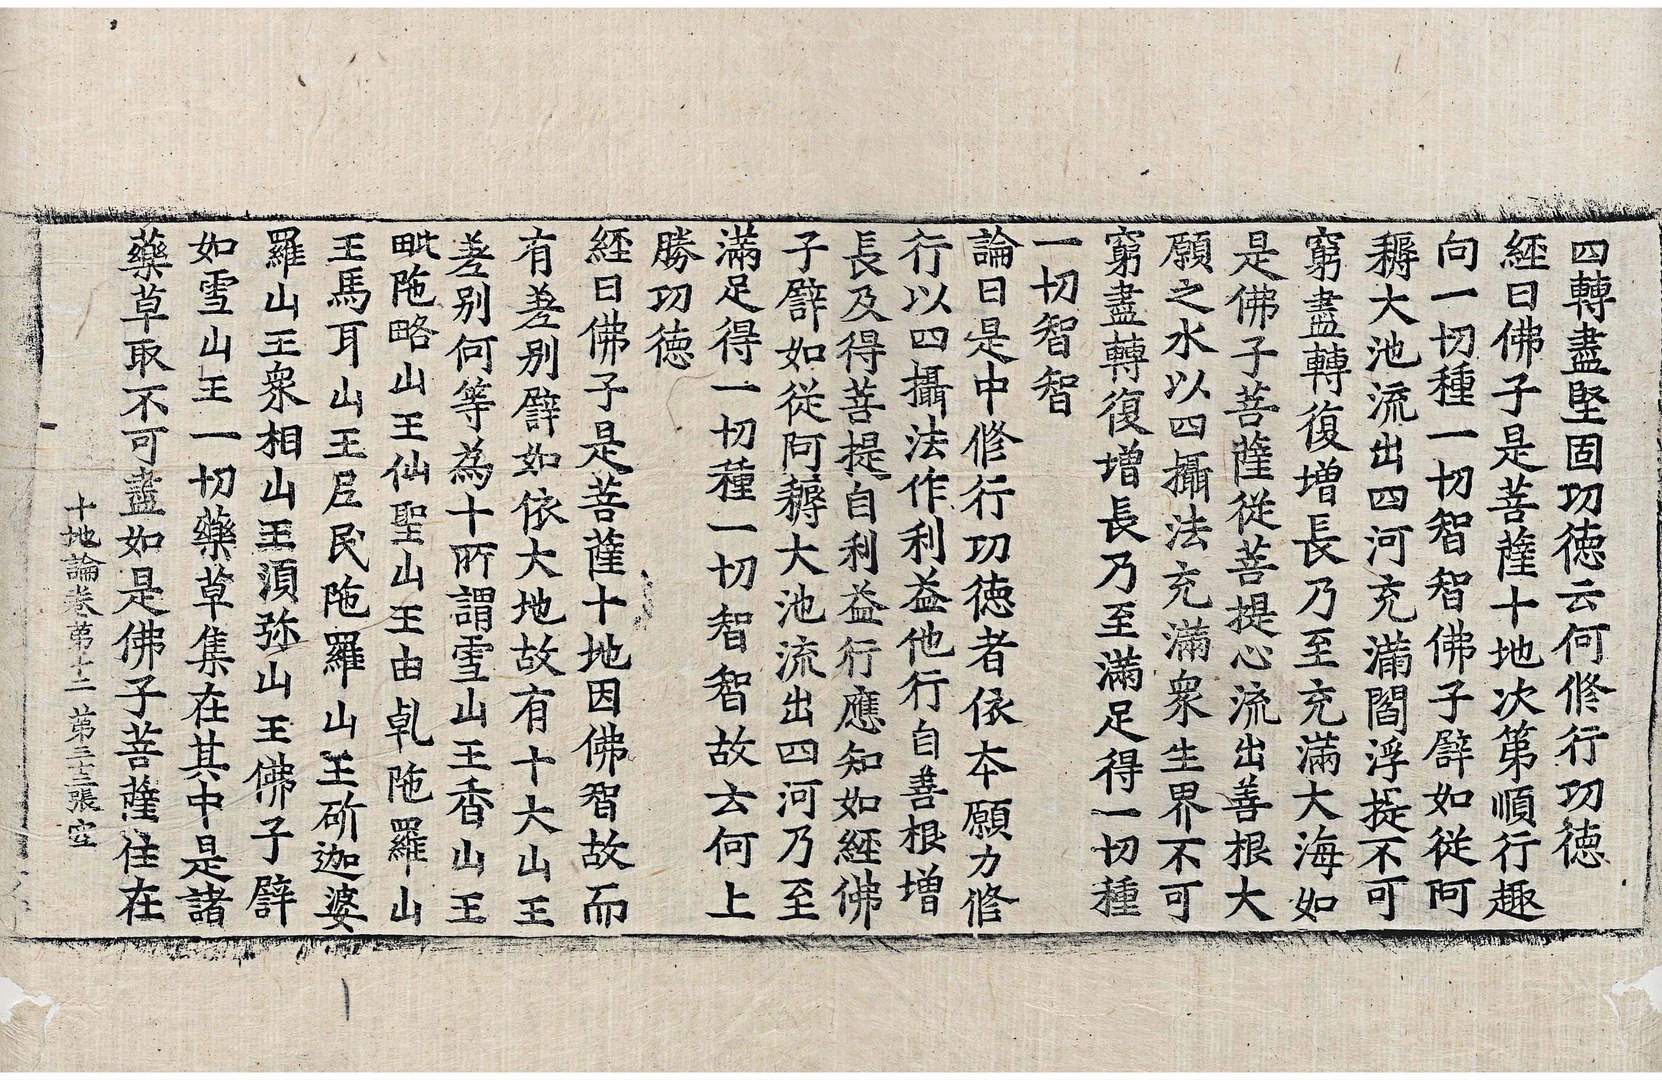 四轉盡堅固功德云何修行功德
經曰佛子是菩薩十地次第順行趣
向一切種一切智智佛子譬如從阿
耨大池流出四河充滿閻浮提不可
窮盡轉復增長乃至充滿大海如
是佛子菩薩從菩提心流出善根大
願之水以四攝法充滿衆生界不可
窮盡轉復增長乃至滿足得一切種
一切智智
論曰是中修行功德者依本願力修
行以四攝法作利益他行自善根增
長及得菩提自利益行應知如經佛
子譬如從阿耨大池流出四河乃至
滿足得一切種一切智智故云何上
勝功德
經曰佛子是菩薩十地因佛智故而
有差別譬如依大地故有十大山王
差別何等為十所謂雪山王香山王
毗陁略山王仙聖山王由乹陁羅山
王馬耳山王尼民陁羅山王斫迦婆
羅山王衆相山王湏弥山王佛子譬
如雪山王一切藥草集在其中是諸
藥草取不可盡如是佛子菩薩住在
十地論卷第十二 第三十三張 空